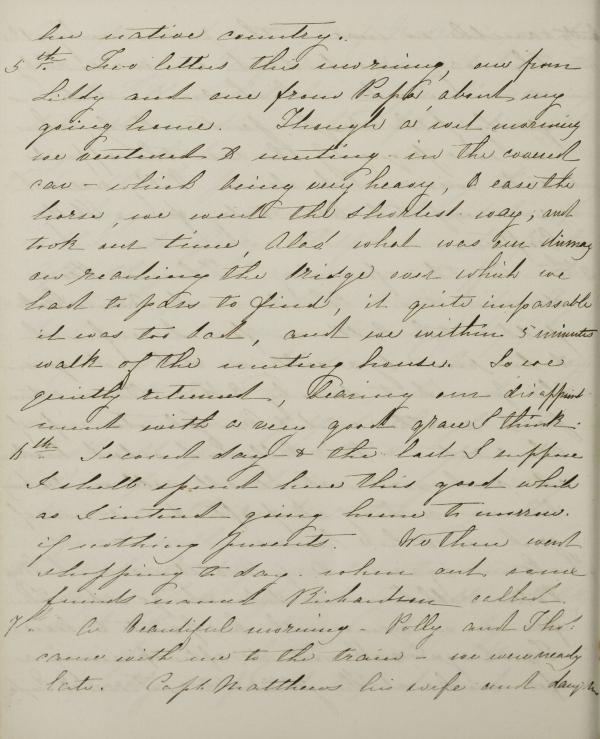 her native country.
5th. Two letters this morning, one from
Lildy and one from Papa, about my
going home. Though a wet morning
we ventured to meeting in the covered
car - which being very heavy, to ease the
horse, we went the shortest way; and
took our time, Alas! what was our dismay
on reaching the bridge over which we
had to pass to find, it quite impassable
it was too bad, and we within 5 minutes
walk of the meeting house. So we
quietly returned, bearing our disappoint
ment with a very good grace I think.
6th Second day & the last I suppose
I shall spend here this good while
as I intend going home to morrow.
if nothing prevents. We three went
shopping to day. when out some
friends named Richardson called
7th. A Beautiful morning - Polly and Thos.
came with me to the train - we were nearly
late. Capt. Matthews his wife and